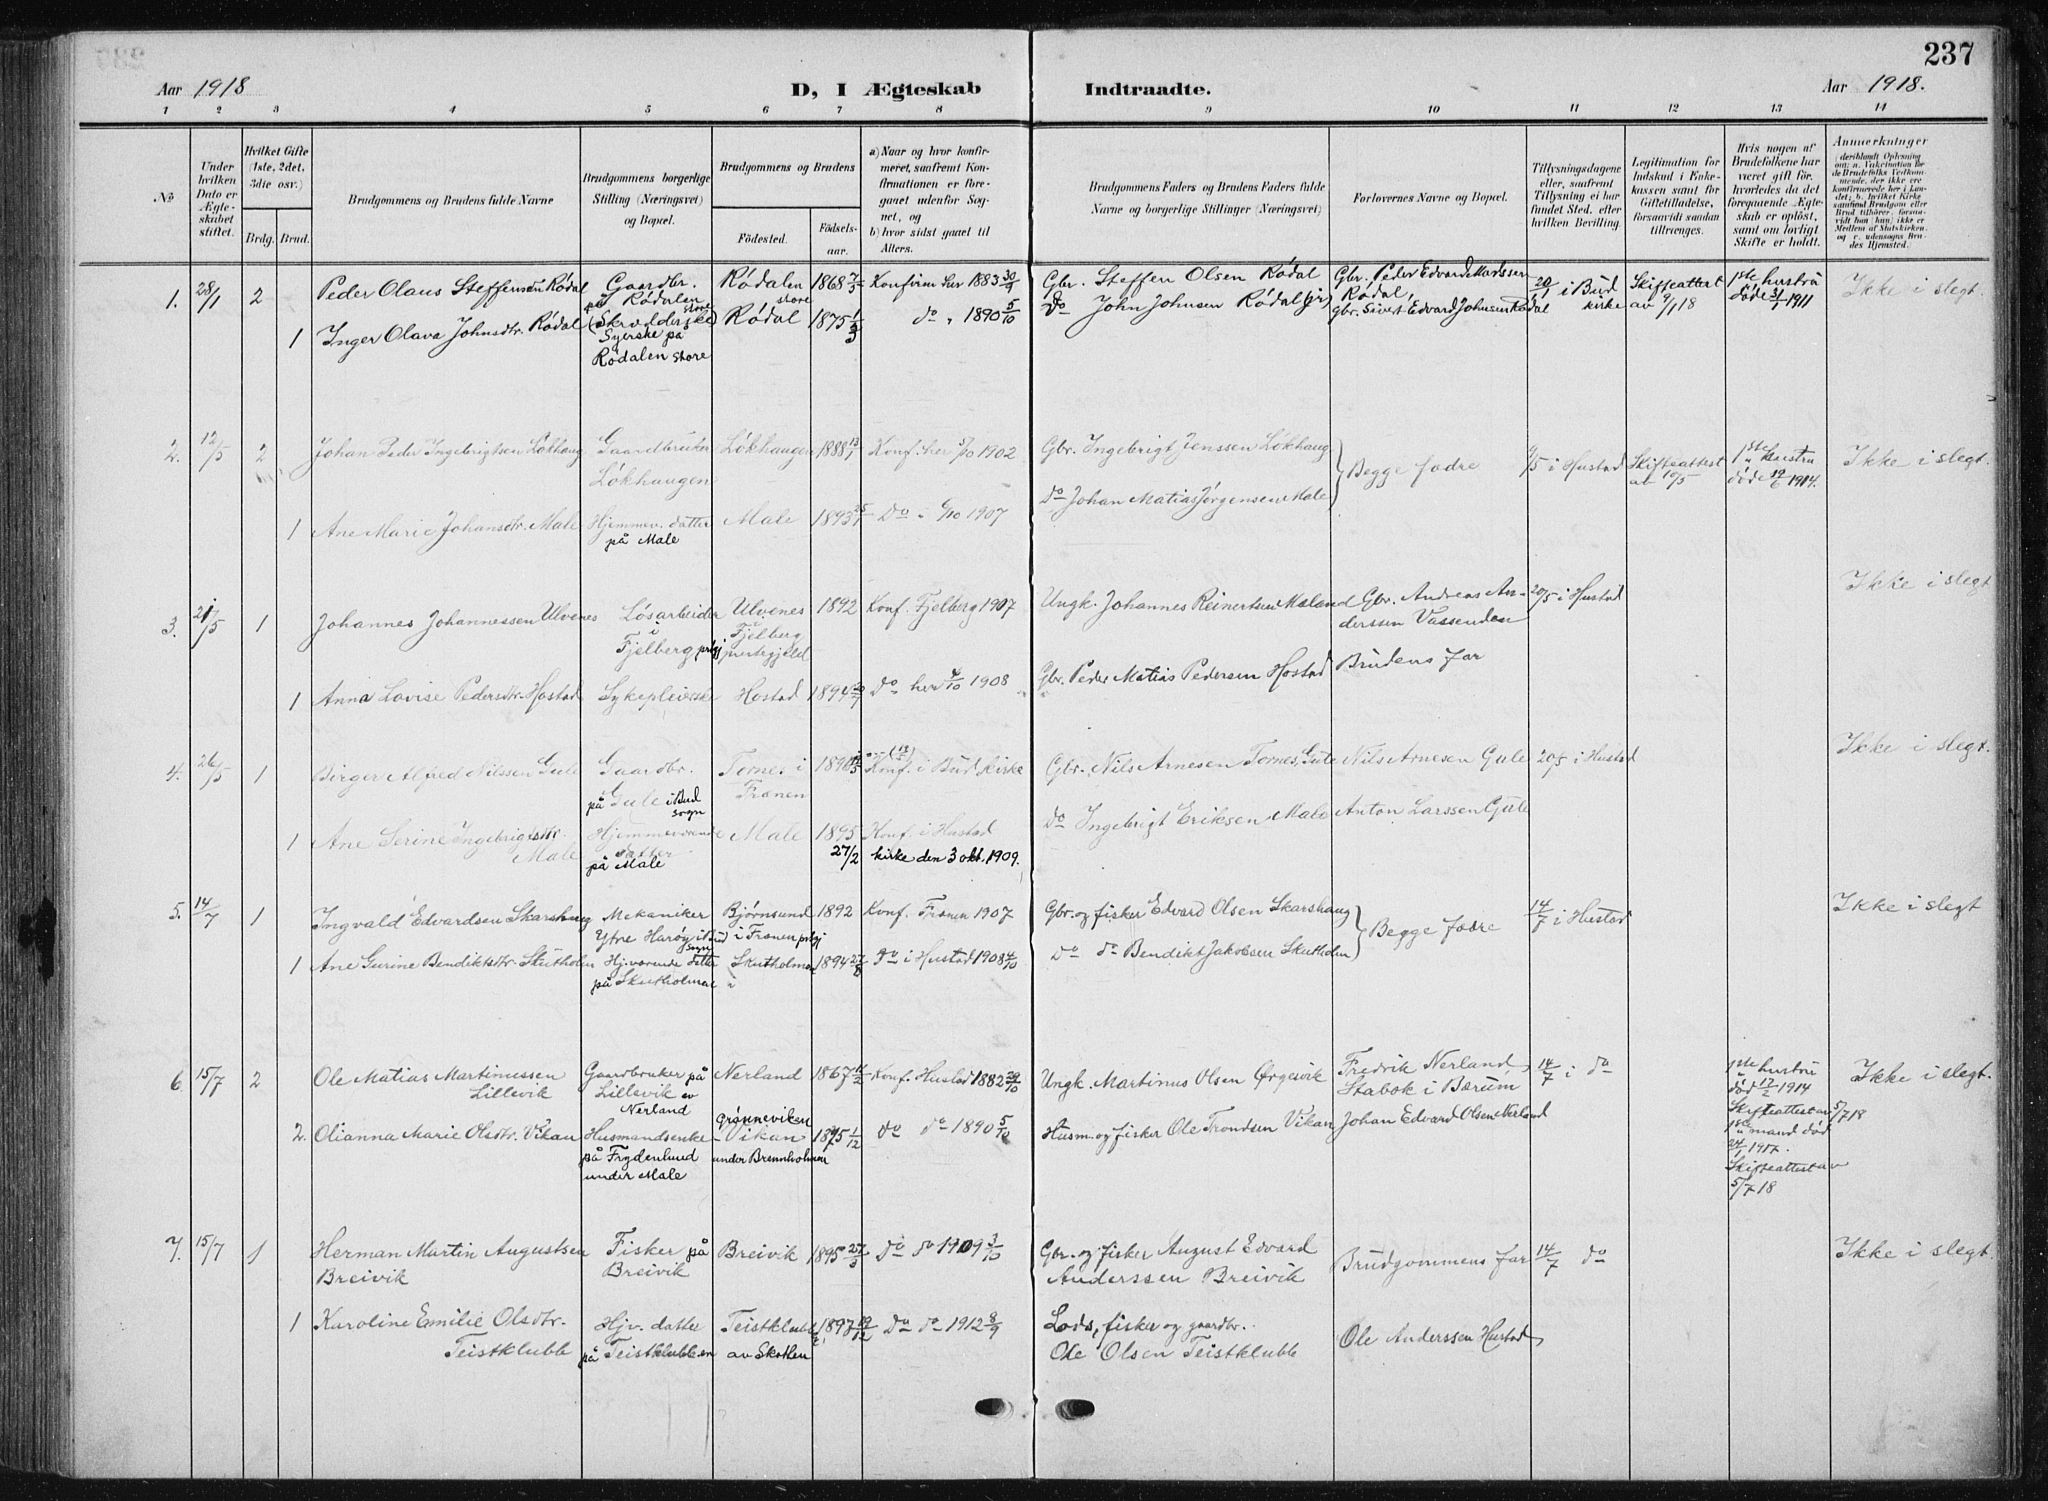 237
Aar 1918
D, I Ægteskab Indtraadte.
Aar 1918.
1 2 3 4 5 6 7 8 9 10 11 12 13 14
No
Under hvilken Dato er Ægteskabet stiftet.
Hvilket Gifte (1ste, 2det, 3die osv.)
Brdg. Brud.
Brudgommens og Brudens fulde Navne
Brudgommens borgerlige Stilling (Næringsvei) og Bopæl.
Brudgommens og Brudens
Fødested. Fødselsaar.
a) Naar og hvor konfirmeret, saafremt Konfirmationen er foregaaet udenfor Sognet, og
b) hvor sidst gaaet til Alters.
Brudgommens Faders og Brudens Faders fulde Navne og borgerlige Stillinger (Næringsvei)
Forlovernes Navne og Bopæl.
Tillysningsdagene eller, saafremt Tillysning ei har fundet Sted, efter hvilken Bevilling.
Legitimation for Indskud i Enkekassen samt for Giftetilladelse, forsaavidt saadan tiltrænges.
Hvis nogen af Brudefolkene har været gift før, hvorledes da det foregaaende Ægteskab er opløst, samt om lovligt Skifte er holdt.
Anmerkninger (deriblandt Oplysning om: a. Vakcination for de Brudefolks Vedkommende, der ikke ere konfirmerede her i Landet; b. hvilket Kirkesamfund Brudgom eller Brud tilhører, forsaavidt han (hun) ikke er Medlem af Statskirken, og c. udensogns Brudes Hjemsted.
1. 28/1 2 Peder Olaus Steffensen Rødal Gaardbr. på Rødalen store Rødalen store 1868 7/5 Konfirm her 1883 30/9 Gbr. Steffen Olsen Rødal Gbr. Peder Edvard Madssen Rødal, 20/1 i Bud kirke Skifteattest av 9/1 18 1ste hustru døde 31/7 1911 Ikke i slegt.
1 Inger Olava Johnsdtr. Rødal (Skrædderske) Syerske på Rødalen store Rødal 1875 1/3 do " 1890 5/10 Do John Johnsen Rødal (jr) Gbr. Sivert Edvard Johnsen Rødal
2. 12/5 2 Johan Peder Ingebrigtsen Løkhaug Gaardbruker Løkhaugen Løkhaugen 1888 13/1 Konf. her 5/10 1902 Gbr. Ingebrigt Jenssen Løkhaug Begge fædre 9/5 i Hustad Skifteattest av 10/5 1ste hustru døde 19/6 1914. Ikke i slegt.
1 Ane Marie Johansdtr. Male Hjemmev. datter på Male Male 1893 25/1 Do " 6/10 1907 Do Johan Matias Jørgensen Male
3. 21/5 1 Johannes Johannessen Ulvenes Løsarbeider i Fjelberg prgj Ulvenes i Fjelberg prestegjeld 1892 Konf. Fjelberg 1907 Ungk. Johannes Reinertsen Mæland Gbr. Andreas Anderssen Vassenden 20/5 i Hustad Ikke i slegt
1 Anna Lovise Pedersdtr. Hostad Sykepleierske Hostad 1894 20/7 do her 4/10 1908 Gbr. Peder Matias Pedersen Hostad Brudens far
4. 26/5 1 Birger Alfred Nilssen Gule Gaardbr. på Gule i Bud sogn Tornes i Frænen Konf. i Bud kirke Gbr. Nils Arnesen Tornes, Gule Nils Arnesen Gule 20/5 i Hustad Ikke i slegt.
1 Ane Serine Ingebrigtsdtr. Male Hjemmeværende datter på Male Male 1895 27/2 Konf. i Hustad kirke den 3 okt. 1909. Do Ingebrigt Eriksen Male Anton Larssen Gule
5. 14/7 1 Ingvald Edvardsen Skarshaug Mekaniker Ytre Harøy i Bud sogn Bjørnsund i Frænen prgj 1892 Konf. Frænen 1907 Gbr. og fisker Edvard Olsen Skarshaug Begge fædre 14/7 i Hustad Ikke i slegt
1 Ane Gurine Bendiktsdtr. Skutholm Hj.værende datter på Skutholmen Skutholmen 1894 27/8 Do i Hustad 1908 4/10 do do Bendikt Jakobsen Skutholm
6 15/7 2 Ole Matias Martinussen Lillevik Gaardbruker på Lillevik av Nerland Nerland 1867 Konf. Hustad 1882 29/10 Ungk. Martinus Olsen Ørgesvik Fredrik Nerland, Stabæk i Bærum 14/7 i do 1ste hustru død 17/2 1914 Skifteattest av 5/7 18 Ikke i slegt.
2. Olianna Marie Olsdtr. Vikan Husmandsenke på Frydenlund under Male Grønneviken Vikan under Brennholmen 1875 1/12 do do 1890 5/10 Husm. og fisker Ole Trondsen Vikan Johan Edvard Olsen Nerland 1ste mand død 24/1 1917. Skifteattest av 5/7 18
7. 15/7 1 Herman Martin Augustsen Breivik Fisker på Breivik Breivik 1895 27/3 Do do 1909 3/10 Gbr. og fisker August Edvard Anderssen Breivik Brudgommens far 14/7 do Ikke i slegt.
1 Karoline Emilie Olsdtr. Teistklubb Hjv. datter på Teistklubben Teistklubb av Skotten 1897 19/12 Do do 1912 8/9 Lods, fisker og gaardbr. Ole Olsen Teistklubb Ole Anderssen Hustad